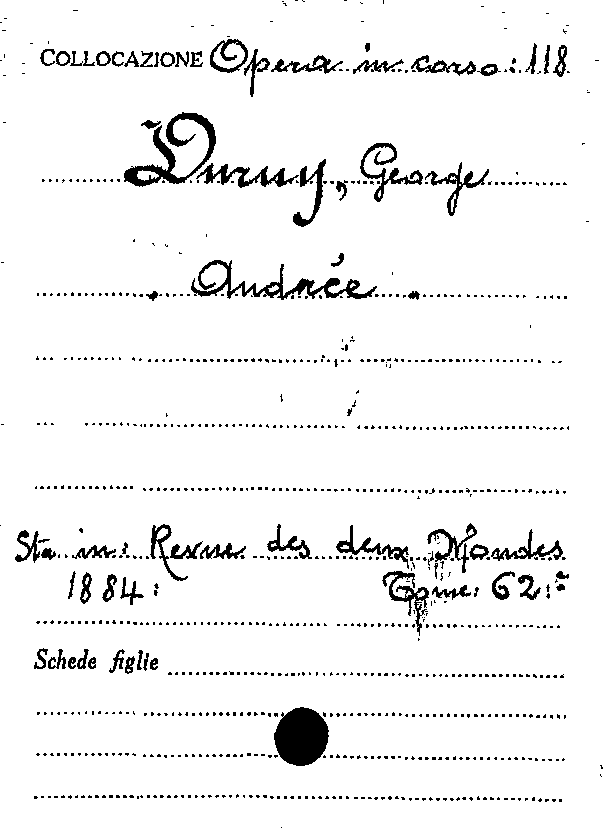 COLLOCAZIONE Opera in corso: 118
Duruy, George
. Andrée .
Sta in: Revue des deux Mondes
1884: Tome: 62:
Schede figlie